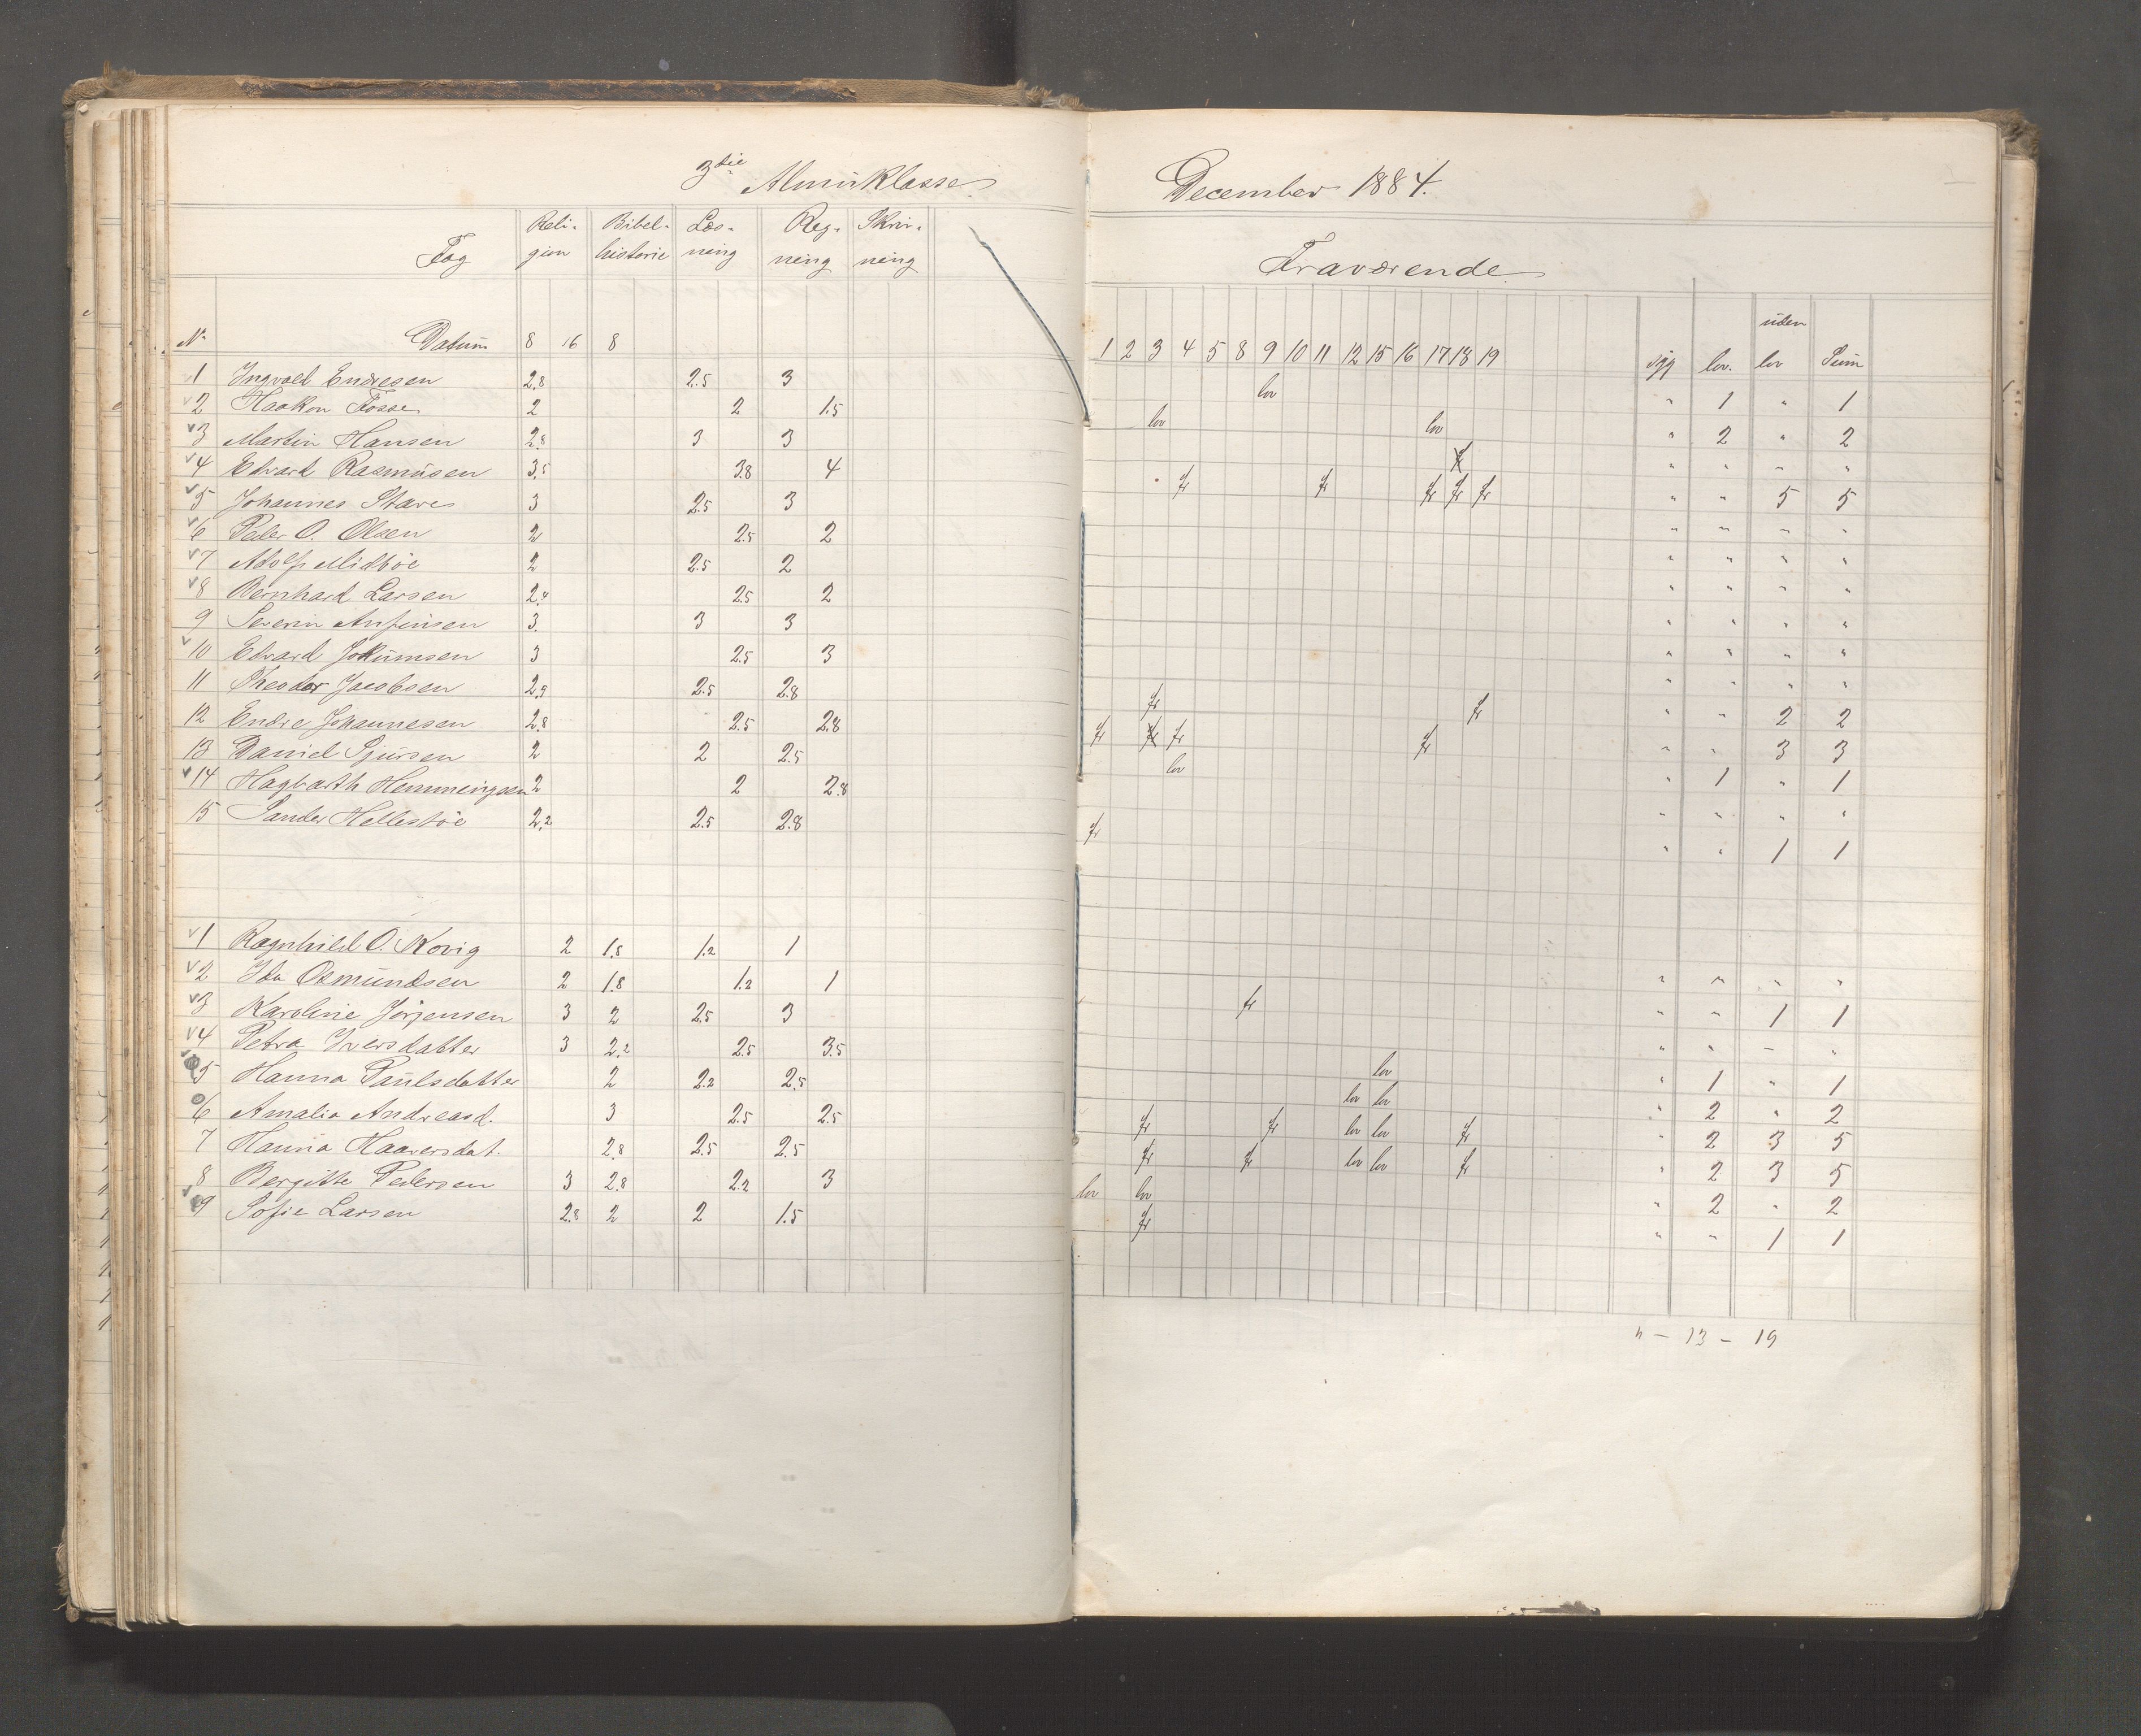 3die Almüklasse
Fag Reli- Bibel- Læs- Reg- Skriv-
gion historie ning ning ning
No Datum 8 16 8
1 Ingvald Endresen 2.8 2.5 3
2 Haakon Fosse 2 2 1.5
v 3 Martin Hansen 2.8 3 3
v 4 Edvard Rasmüsen 3.5 3.8 4
v 5 Johannes Stave 3 2.5 3
v 6 Peder O. Olsen 2 2.5 2
v 7 Adolf Midböe 2 2.5 2
v 8 Bernhard Larsen 2.4 2.5 2
9 Severin Anfinsen 3. 3 3
v 10 Edvard Jokümsen 3 2.5 3
11 Theodor Jacobsen 2.5 2.8
12 Endre Johannesen 2.8 2.5 2.8
13 Daniel Sjürsen 2 2 2.5
v 14 Hagbarth Hemmingsen 2 2 2.8
15 Sander Hellestöe 2.2 2.5 2.8
v 1 Ragnhild O. 2 1.8 1.2 1
v 2 Ida Osmündsen 2 1.8 1.2 1
v 3 Karoline Jörgensen 3 2 2.5 3
v 4 Petra Iversdatter 3 2.2 2.5 3.5
5 Hanna Paülsdatter 2 2.2 2.5
6 Amalia Andreasd. 3 2.5 2.5
7 Hanna Haaversdat. 2.8 2.5 2.5
8 Bergitte Pedersen 3 2.8 2.2 3
v 9 Sofie Larsen 2.8 2 2 1.5
December 1884.
Fraværende
1 2 3 4 5 8 9 10 11 12 15 16 17 18 19 syg lov. uden lov Süm
lov " 1 " 1
lov lov " 2 " 2
" " " "
fr fr fr fr fr " " 5 5
" " " "
" " " "
" " " "
" " " "
" " " "
" " " "
fr fr " " 2 2
fr fr fr " " 3 3
lov " 1 " 1
" " " "
fr " " 1 1
" " " "
fr " " 1 1
" " – "
lov " 1 " 1
lov lov " 2 " 2
fr fr lov lov fr " 2 3 5
fr fr lov lov fr " 2 3 5
lov lov " 2 " 2
fr " " 1 1
" – 13 – 19